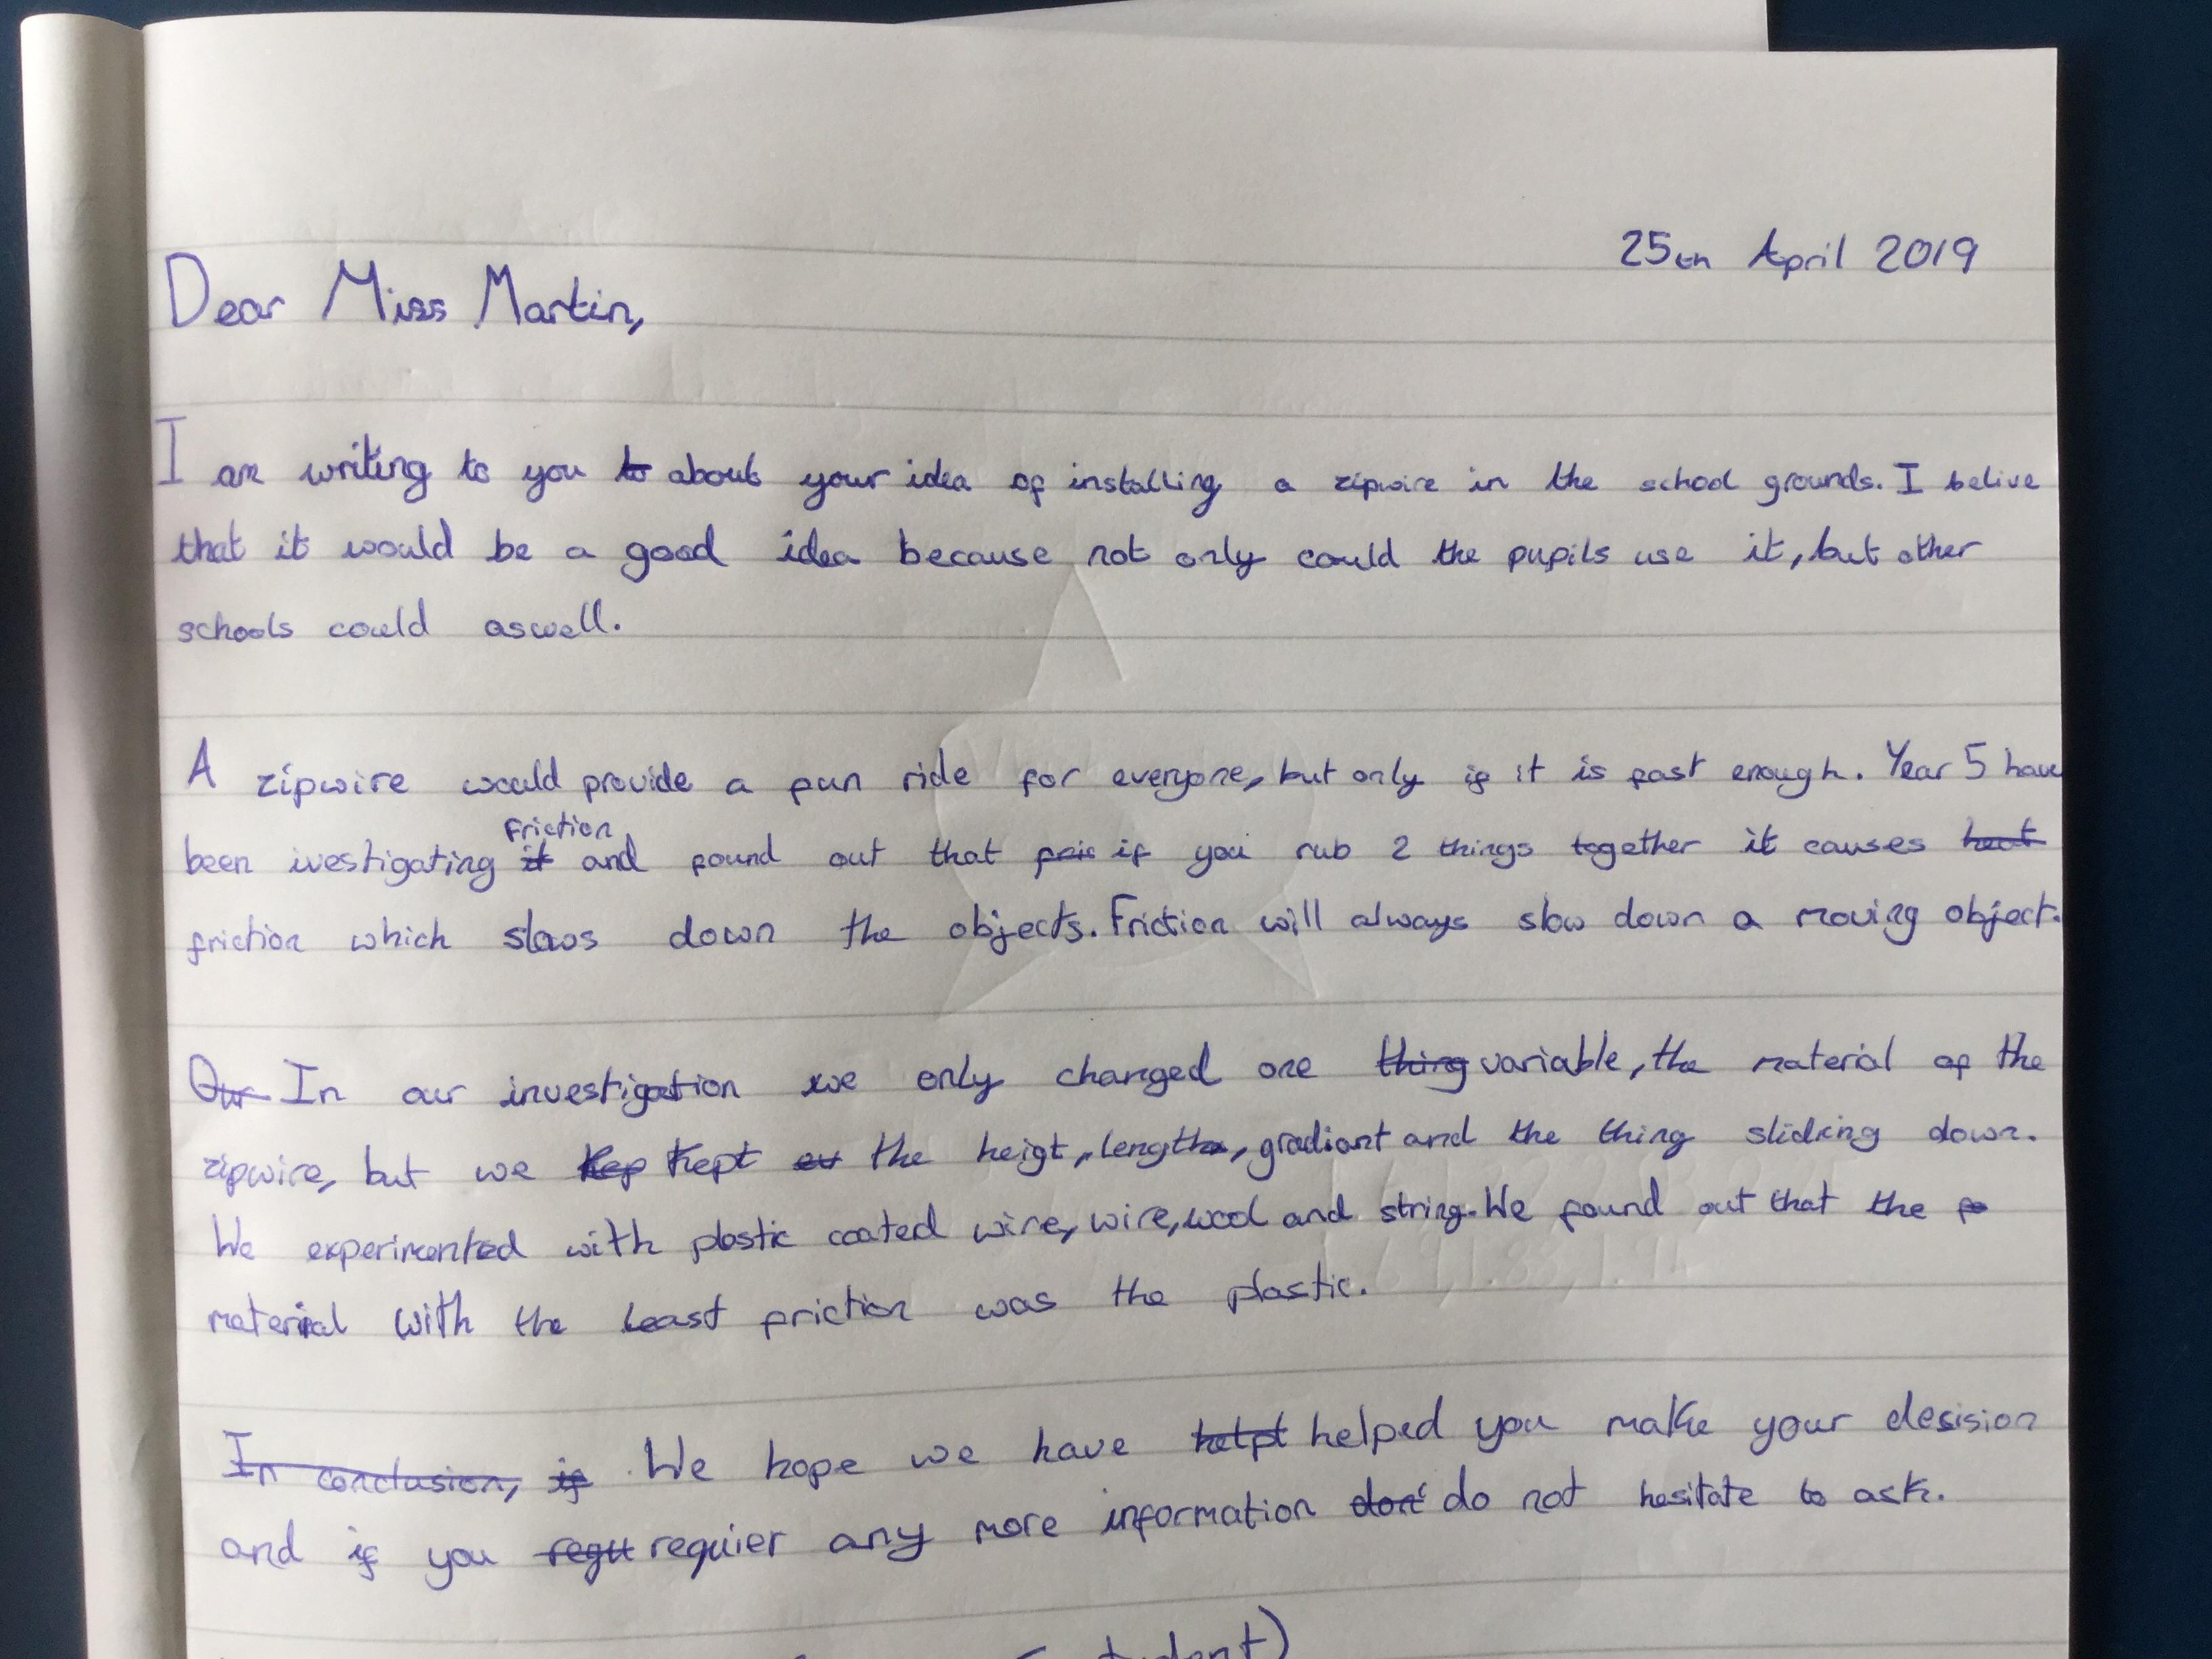 25th April 2019
Dear Miss Martin,
I am writing to you to about your idea of installing a zipwire in the school grounds. I belive
that it would be a good idea because not only could the pupils use it, but other
schools could aswell.
A zipwire would provide a fun ride for everyone, but only if it is fast enough. Year 5 have
friction
been ivestigating it and found out that fric if you rub 2 things together it causes heat
friction which slows down the objects. Friction will always slow down a moving object.
Our In our investigation we only changed one thing variable, the material of the
zipwire, but we kep kept ev the heigt, length, gradiant and the thing sliding down.
We experimented with plastic coated wire, wire, wool and string. We found out that the fo
material with the least friction was the plastic.
In conclusion, if We hope we have helpt helped you make your desision
and if you requ requier any more information don' do not hesitate to ask.
student)